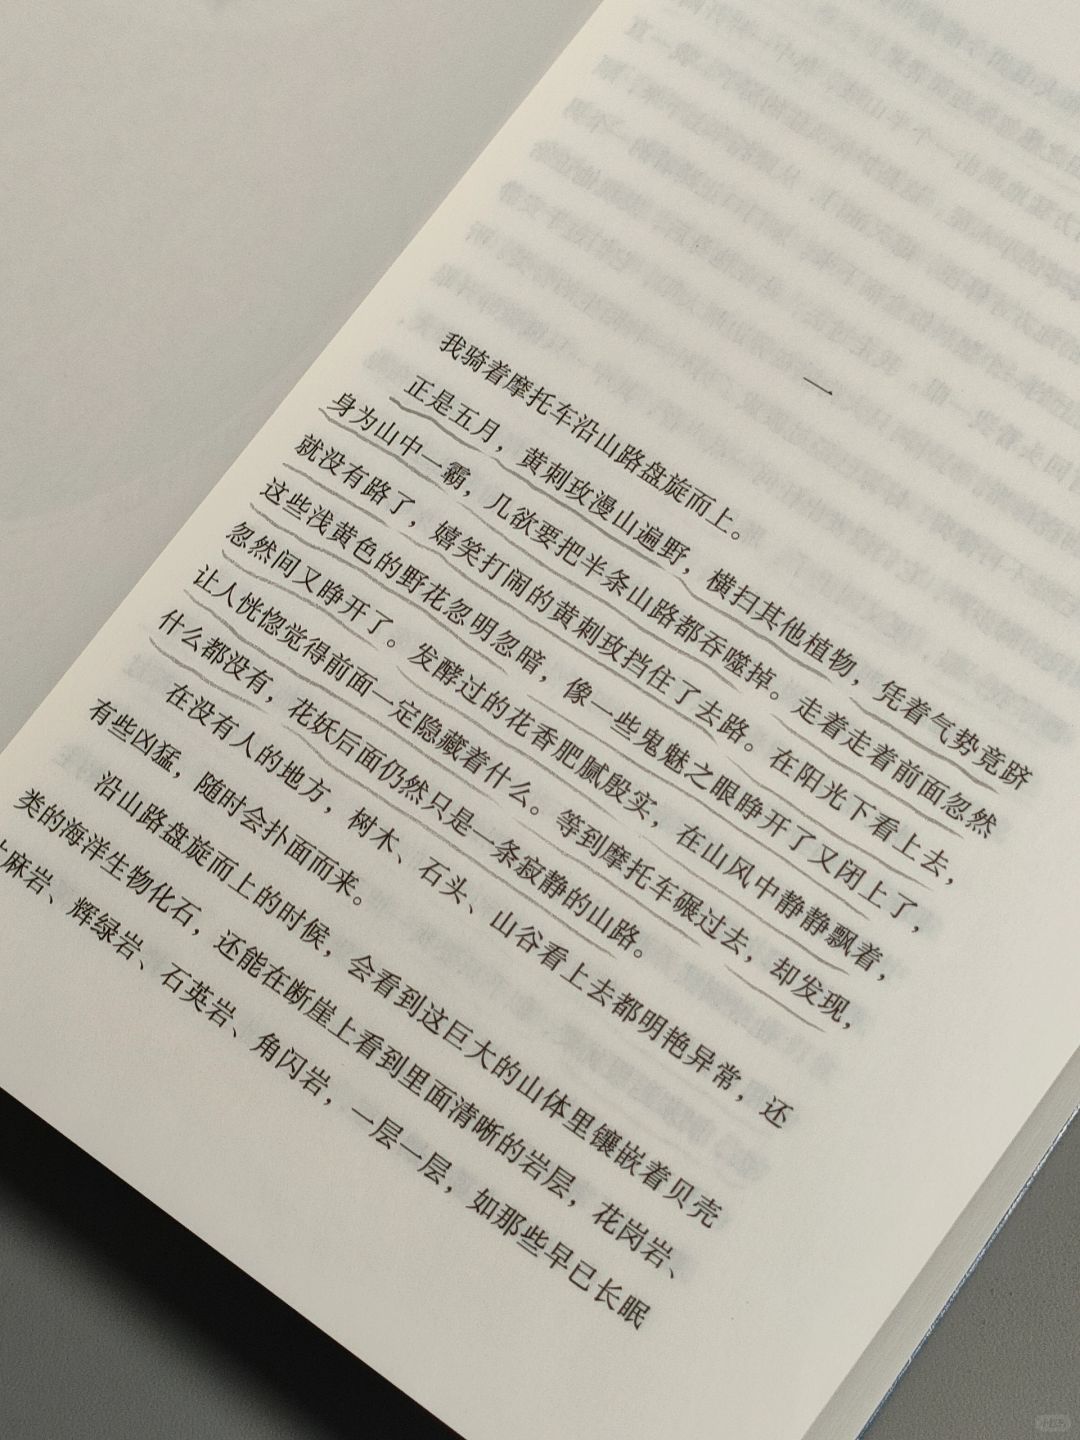 一
我骑着摩托车沿山路盘旋而上。
正是五月，黄刺玫漫山遍野，横扫其他植物，凭着气势竟跻
身为山中一霸，几欲要把半条山路都吞噬掉。走着走着前面忽然
就没有路了，嬉笑打闹的黄刺玫挡住了去路。在阳光下看上去，
这些浅黄色的野花忽明忽暗，像一些鬼魅之眼睁开了又闭上了，
忽然间又睁开了。发酵过的花香肥腻殷实，在山风中静静飘着，
让人恍惚觉得前面一定隐藏着什么。等到摩托车碾过去，却发现，
什么都没有，花妖后面仍然只是一条寂静的山路。
在没有人的地方，树木、石头、山谷看上去都明艳异常，还
有些凶猛，随时会扑面而来。
沿山路盘旋而上的时候，会看到这巨大的山体里镶嵌着贝壳
类的海洋生物化石，还能在断崖上看到里面清晰的岩层，花岗岩、
麻岩、辉绿岩、石英岩、角闪岩，一层一层，如那些早已长眠
小红书